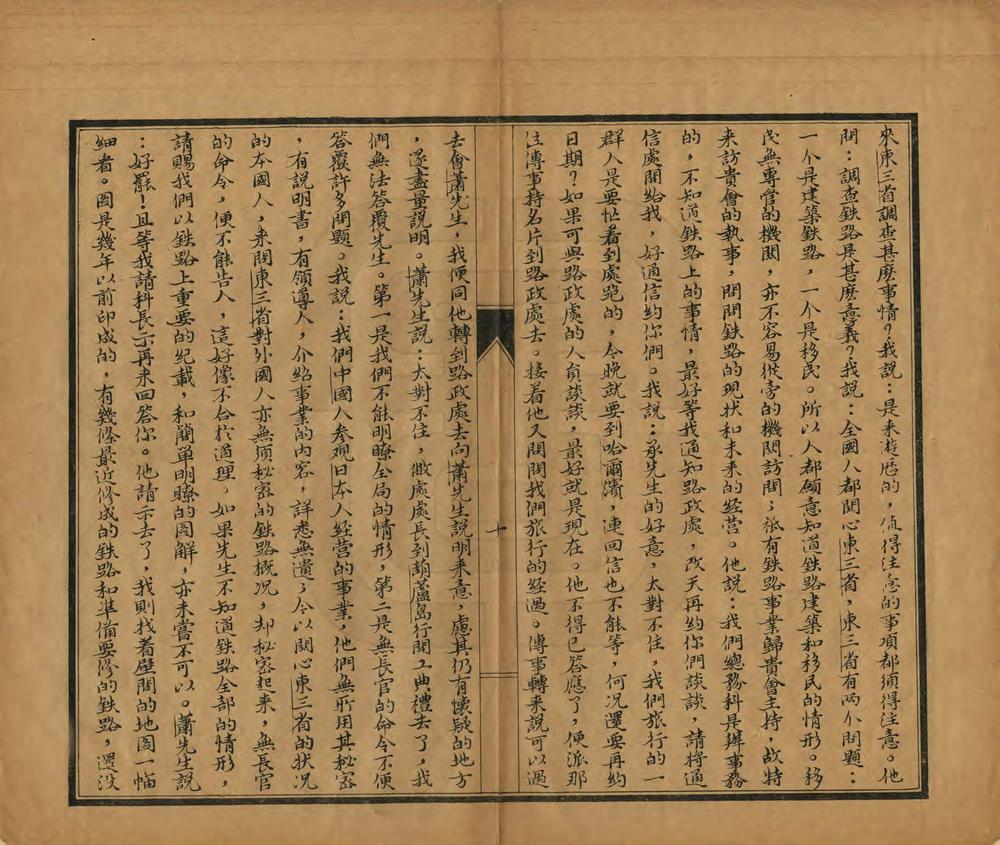 來東三省調查甚麽事情？我說：是來遊歷的，值得注意的事項都須得注意。他
問：調查鉄路是甚麽意義？我說：全國人都関心東三省，東三省有两个問題：
一个是建築鉄路，一个是移民。所以人都願意知道鉄路建築和移民的情形。移
民無專管的機関，亦不容易從旁的機関訪問；祗有鉄路事業歸貴會主持，故特
来訪貴會的執事，問問鉄路的現状和未来的経营。他說：我們總務科是辦事務
的，不知道鉄路上的事情，最好等我通知路政處，改天再約你們談談，請將通
信處開給我，好通信約你們。我說：承先生的好意，太對不住，我們旅行的一
群人是要忙着到處跑的，今晚就要到哈爾濱，連回信也不能等，何況還要再約
日期？如果可與路政處的人員談談，最好就是現在。他不得已答應了，便派那
位傳事持名片到路政處去。接着他又問問我們旅行的经過。傳事轉来說可以過
十
去會蕭先生，我便同他轉到路政處去向蕭先生說明来意，慮其仍有懐疑的地方
，遂盡量說明。蕭先生說：太對不住，敝處處長到葫蘆島行開工典禮去了，我
們無法答覆先生。第一是我們不能明瞭全局的情形，第二是無長官的命令不便
答覆許多問題。我說：我們中國人参观日本人经營的事業，他們無所用其秘密
，有説明書，有領導人，介紹事業的内容，詳悉無遺；今以関心東三省的状况
的本國人，来問東三省對外國人亦無須秘密的鉄路概况，却秘密起来，無長官
的命令，便不能告人，這好像不合於道理，如果先生不知道鉄路全部的情形，
請賜我們以鉄路上重要的紀載，和簡單明瞭的图解，亦未嘗不可以。蕭先生説
：好罷！且等我請科長示再来回答你。他請示去了，我則找着壁間的地图一幅
細看。图是幾年以前印成的，有幾條最近修成的鉄路和准備要修的鉄路，還没